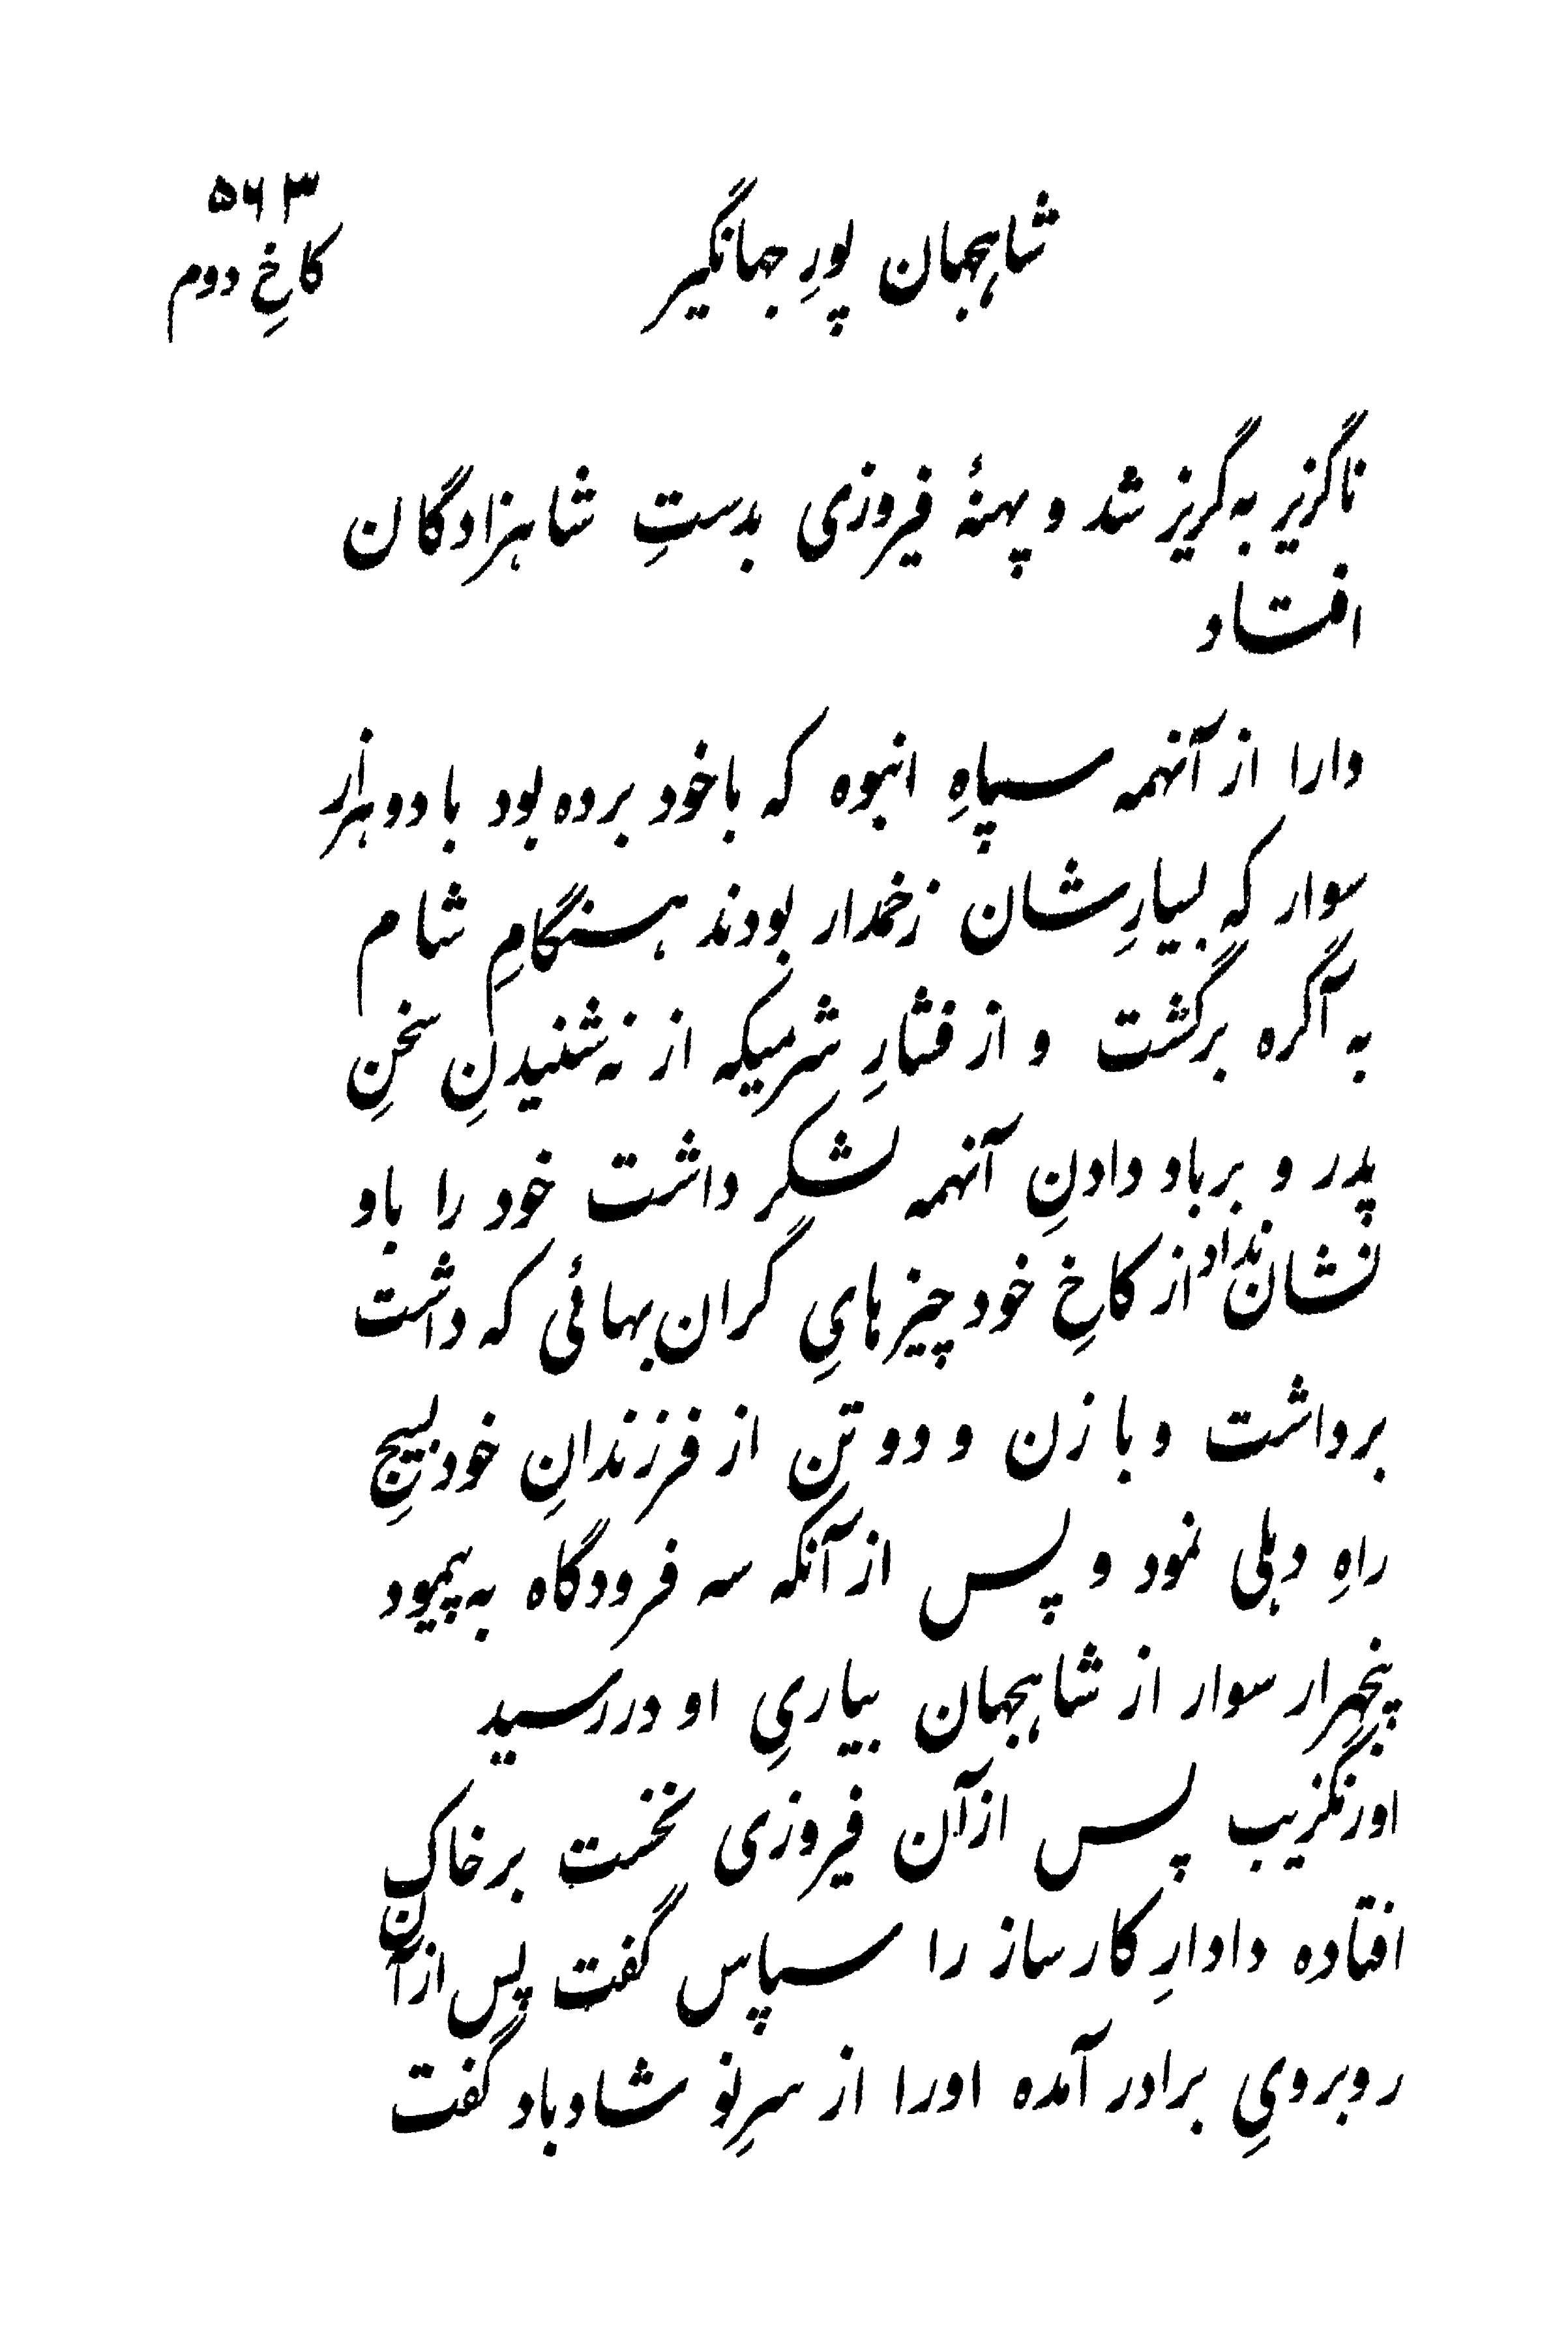 ۵۶۳
شاهجهان پورِ جهانگیر
کاخِ دوم
ناگزیر به گریز شد و پهنۀ فیروزی بدستِ شاهزادگان
افتاد
دارا از آنهمه سپاهِ انبوه که باخود برده بود با دو هزار
سوار که بسیارِشان زخمدار بودند هنگامِ شام
به آگره برگشت و از فشارِ شرمیکه از نه شنیدنِ سخنِ
پدر و برباد دادنِ آنهمه لشکر داشت خود را باو
نشان نداد از کاخِ خود چیزهایِ گران بهائی که داشت
برداشت و با زن و دو تن از فرزندانِ خود بسیجِ
راهِ دهلی نمود و پس از آنکه سه فرودگاه به پیمود
پنجهزار سوار از شاهجهان بیاریِ او در رسید
اورنگزیب پس از آن فیروزی نخست بر خاک
افتاده دادارِ کارساز را سپاس گفت پس از آن
روبرویِ برادر آمده اورا از سرِنو شادباد گفت